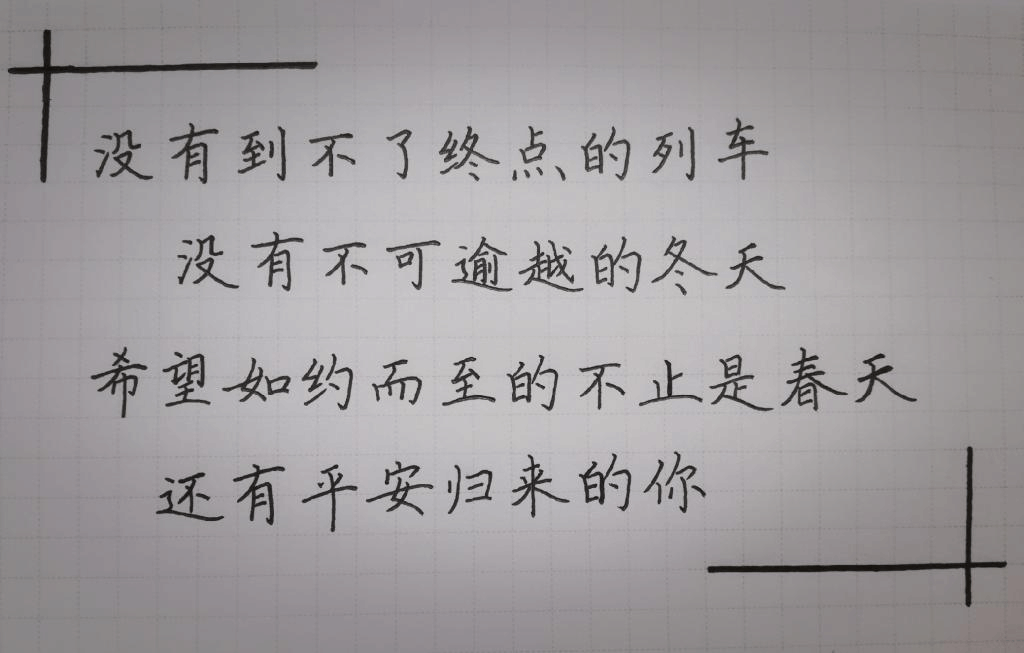 没有到不了终点的列车
没有不可逾越的冬天
希望如约而至的不止是春天
还有平安归来的你